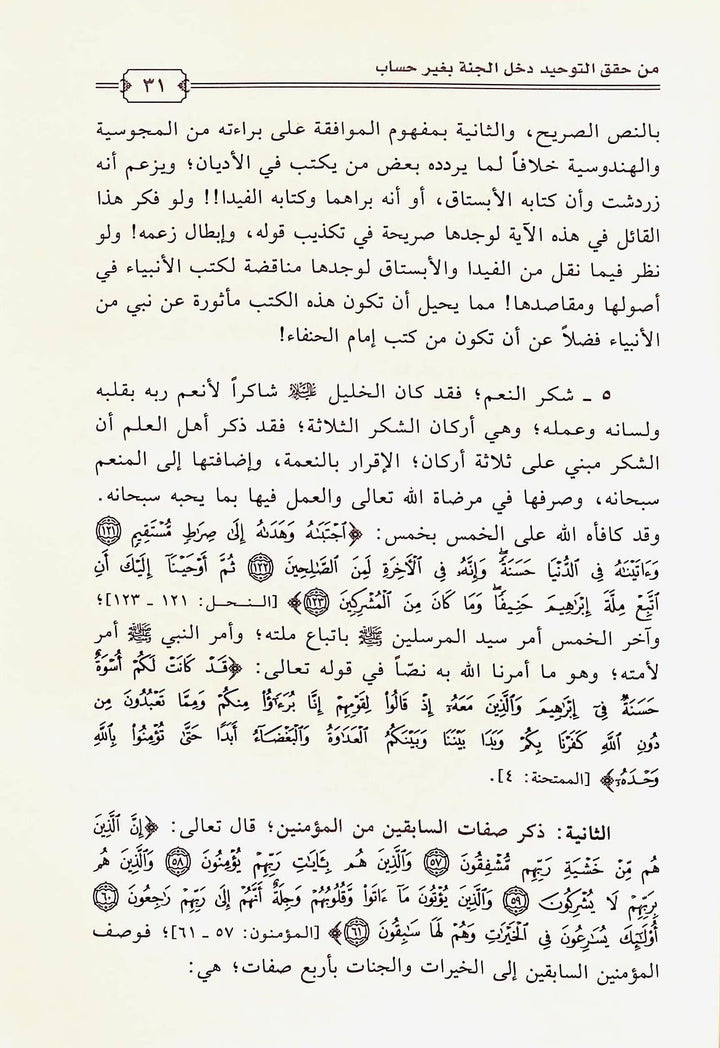 من حقق التوحيد دخل الجنة بغير حساب
٣١
بالنص الصريح، والثانية بمفهوم الموافقة على براءته من المجوسية
والهندوسية خلافاً لما يردده بعض من يكتب في الأديان؛ ويزعم أنه
زردشت وأن كتابه الأبستاق، أو أنه براهما وكتابه الفيدا!! ولو فكر هذا
القائل في هذه الآية لوجدها صريحة في تكذيب قوله، وإبطال زعمه! ولو
نظر فيما نقل من الفيدا والأبستاق لوجدها مناقضة لكتب الأنبياء في
أصولها ومقاصدها! مما يحيل أن تكون هذه الكتب مأثورة عن نبي من
الأنبياء فضلاً عن أن تكون من كتب إمام الحنفاء!
٥ ـ شكر النعم؛ فقد كان الخليل ﷺ شاكراً لأنعم ربه بقلبه
ولسانه وعمله؛ وهي أركان الشكر الثلاثة؛ فقد ذكر أهل العلم أن
الشكر مبني على ثلاثة أركان؛ الإقرار بالنعمة، وإضافتها إلى المنعم
سبحانه، وصرفها في مرضاة الله تعالى والعمل فيها بما يحبه سبحانه.
وقد كافأه الله على الخمس بخمس: ﴿ٱجۡتَبَىٰهُ وَهَدَىٰهُ إِلَىٰ صِرَٰطٖ مُّسۡتَقِيمٖ ١٢١
وَءَاتَيۡنَٰهُ فِي ٱلدُّنۡيَا حَسَنَةٗۖ وَإِنَّهُۥ فِي ٱلۡأٓخِرَةِ لَمِنَ ٱلصَّٰلِحِينَ ١٢٢ ثُمَّ أَوۡحَيۡنَآ إِلَيۡكَ أَنِ
ٱتَّبِعۡ مِلَّةَ إِبۡرَٰهِيمَ حَنِيفٗاۖ وَمَا كَانَ مِنَ ٱلۡمُشۡرِكِينَ ١٢٣﴾ [النحل: ١٢١ ـ ١٢٣]؛
وآخر الخمس أمر سيد المرسلين ﷺ باتباع ملته؛ وأمر النبي ﷺ أمر
لأمته؛ وهو ما أمرنا الله به نصّاً في قوله تعالى: ﴿قَدۡ كَانَتۡ لَكُمۡ أُسۡوَةٌ
حَسَنَةٞ فِيٓ إِبۡرَٰهِيمَ وَٱلَّذِينَ مَعَهُۥٓ إِذۡ قَالُواْ لِقَوۡمِهِمۡ إِنَّا بُرَءَٰٓؤُاْ مِنكُمۡ وَمِمَّا تَعۡبُدُونَ مِن
دُونِ ٱللَّهِ كَفَرۡنَا بِكُمۡ وَبَدَا بَيۡنَنَا وَبَيۡنَكُمُ ٱلۡعَدَٰوَةُ وَٱلۡبَغۡضَآءُ أَبَدًا حَتَّىٰ تُؤۡمِنُواْ بِٱللَّهِ
وَحۡدَهُۥٓ﴾ [الممتحنة: ٤].
الثانية: ذكر صفات السابقين من المؤمنين؛ قال تعالى: ﴿إِنَّ ٱلَّذِينَ
هُم مِّنۡ خَشۡيَةِ رَبِّهِم مُّشۡفِقُونَ ٥٧ وَٱلَّذِينَ هُم بِـَٔايَٰتِ رَبِّهِمۡ يُؤۡمِنُونَ ٥٨ وَٱلَّذِينَ هُم
بِرَبِّهِمۡ لَا يُشۡرِكُونَ ٥٩ وَٱلَّذِينَ يُؤۡتُونَ مَآ ءَاتَواْ وَّقُلُوبُهُمۡ وَجِلَةٌ أَنَّهُمۡ إِلَىٰ رَبِّهِمۡ رَٰجِعُونَ ٦٠
أُوْلَٰٓئِكَ يُسَٰرِعُونَ فِي ٱلۡخَيۡرَٰتِ وَهُمۡ لَهَا سَٰبِقُونَ ٦١﴾ [المؤمنون: ٥٧ ـ ٦١]؛ فوصف
المؤمنين السابقين إلى الخيرات والجنات بأربع صفات؛ هي: